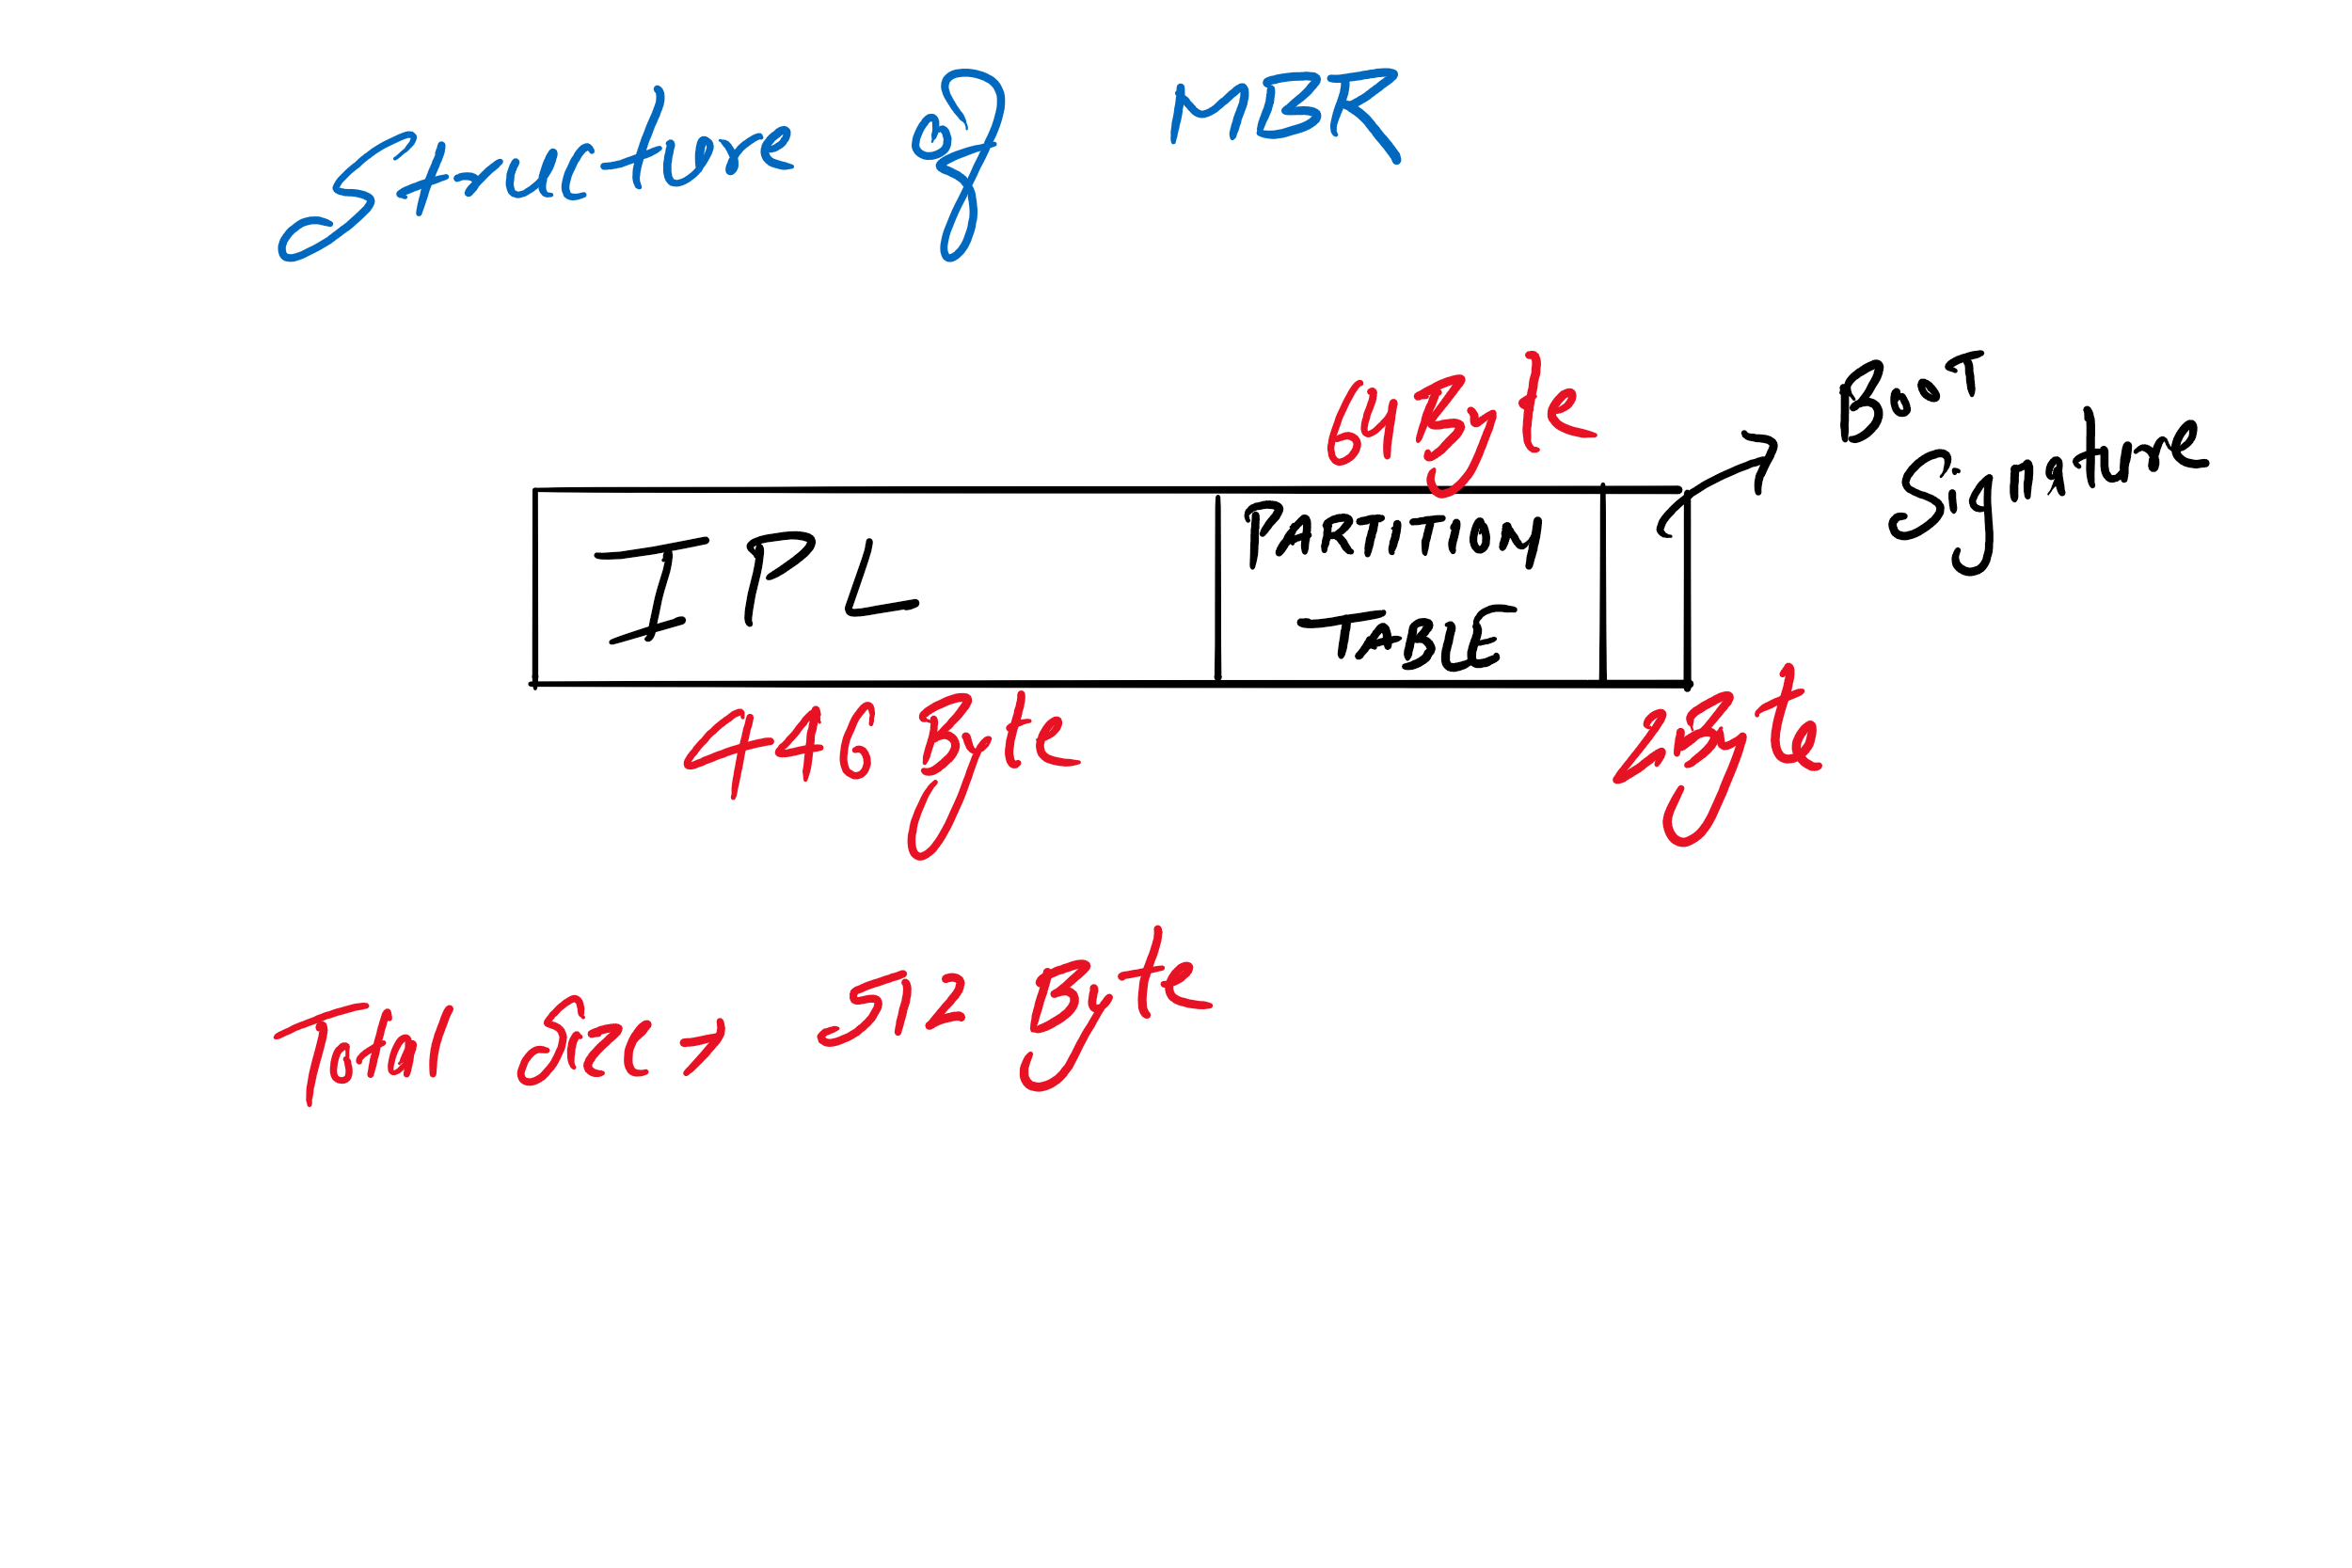 Structure of MBR
64Byte
Boot
Signature
IPL
PARTITION
TABLE
446 Byte
2Byte
Total Size → 512 Byte